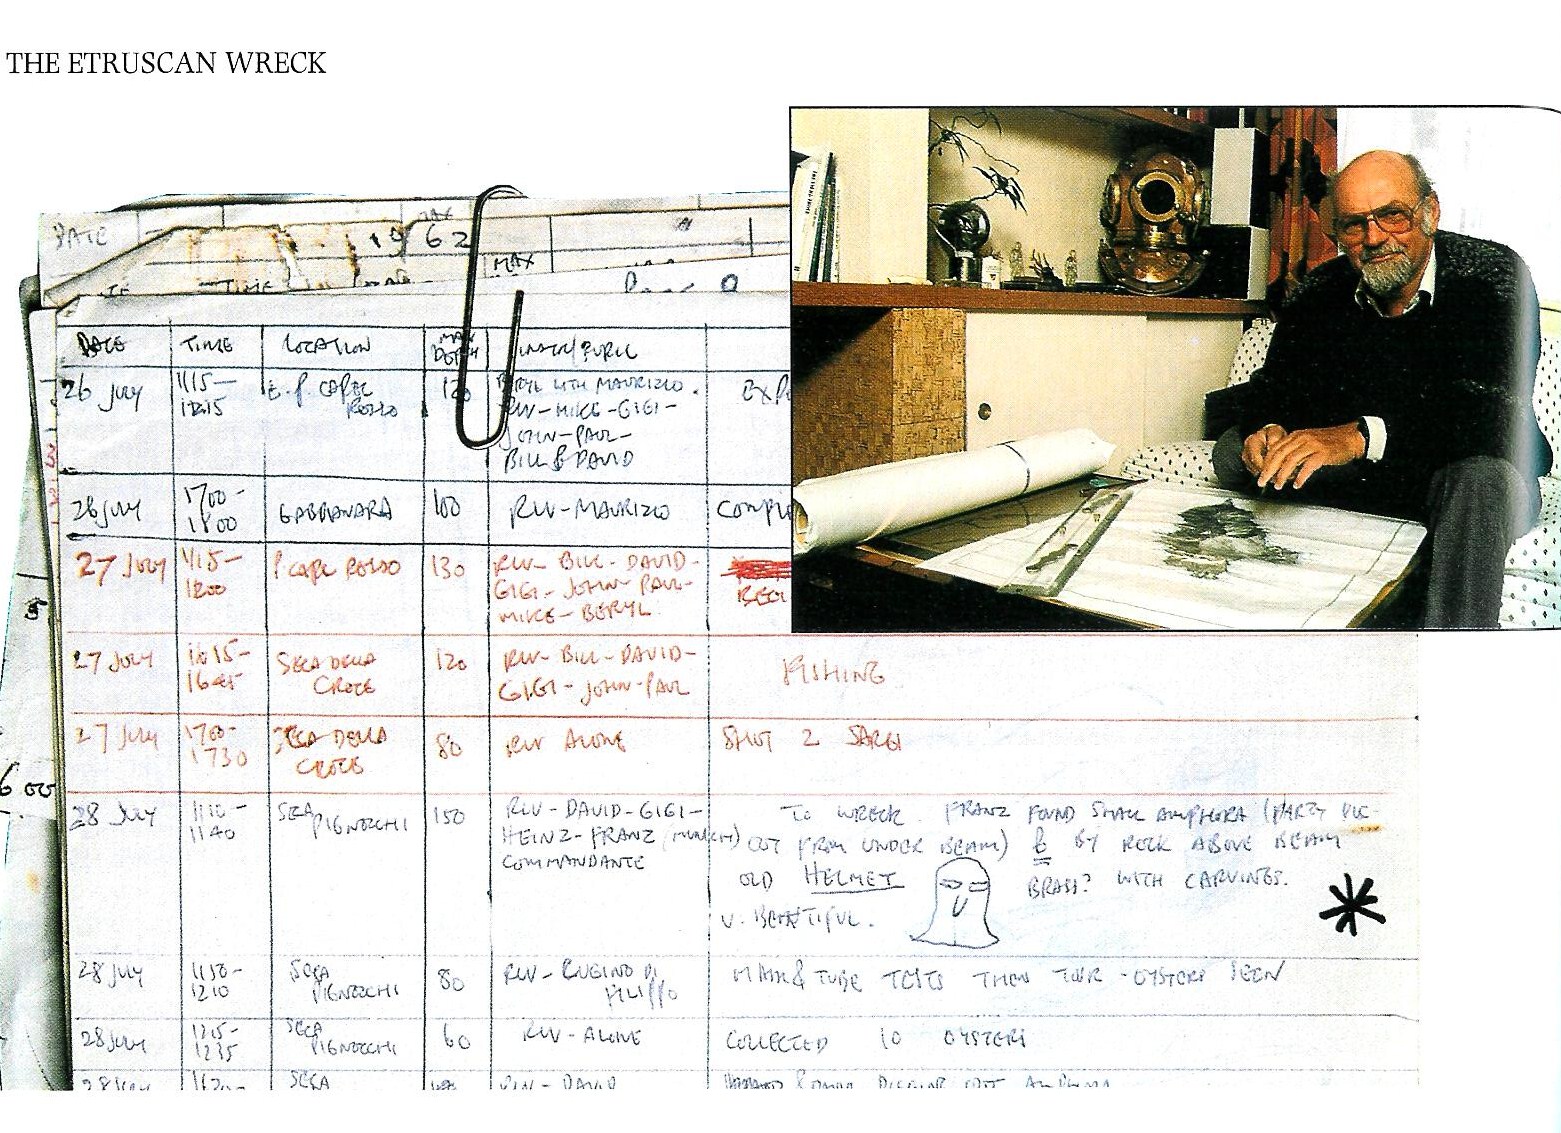 THE ETRUSCAN WRECK
DATE
1962
MAX
TIME
DATE TIME LOCATION MAX DEPTH
26 JULY 1115- 1215 E. P. CAPEL ROSSO 120 BERYL WITH MAURIZIO.
RLV-MIKE-GIGI-
JOHN-PAUL-
BILL & DAVID
26 JULY 1700- 1800 GABBIANARA 100 RLV-MAURIZIO
27 JULY 1115- 1200 P. CAPEL ROSSO 130 RLV- BILL- DAVID-
GIGI- JOHN- PAUL-
MIKE- BERYL
27 JULY 1615- 1645 SECA DELLA CROCE 120 RLV- BILL- DAVID- FISHING
GIGI- JOHN- PAUL
27 JULY 1700- 1730 SECA DELLA CROCE 80 RLV ALONE SHOT 2 SARGI
28 JULY 1110- 1140 SECA PIGNOCCHI 150 RLV- DAVID- GIGI- TO WRECK. FRANZ FOUND SMALL AMPHORA (PARTY DUG
HEINZ- FRANZ (MUNICH) OUT FROM UNDER BEAM) & BY ROCK ABOVE BEAM
COMMANDANTE OLD HELMET BRASS? WITH CARVINGS.
V. BEAUTIFUL.
28 JULY 1150- 1210 SECA PIGNOCCHI 80 RLV- RUGINO DI FILIPPO MASK & TUBE TESTS THEN TOUR - OYSTERS SEEN
28 JULY 1215- 1235 SECA PIGNOCCHI 60 RLV- ALONE COLLECTED 10 OYSTERS
28 JULY SECA RLV- DAVID